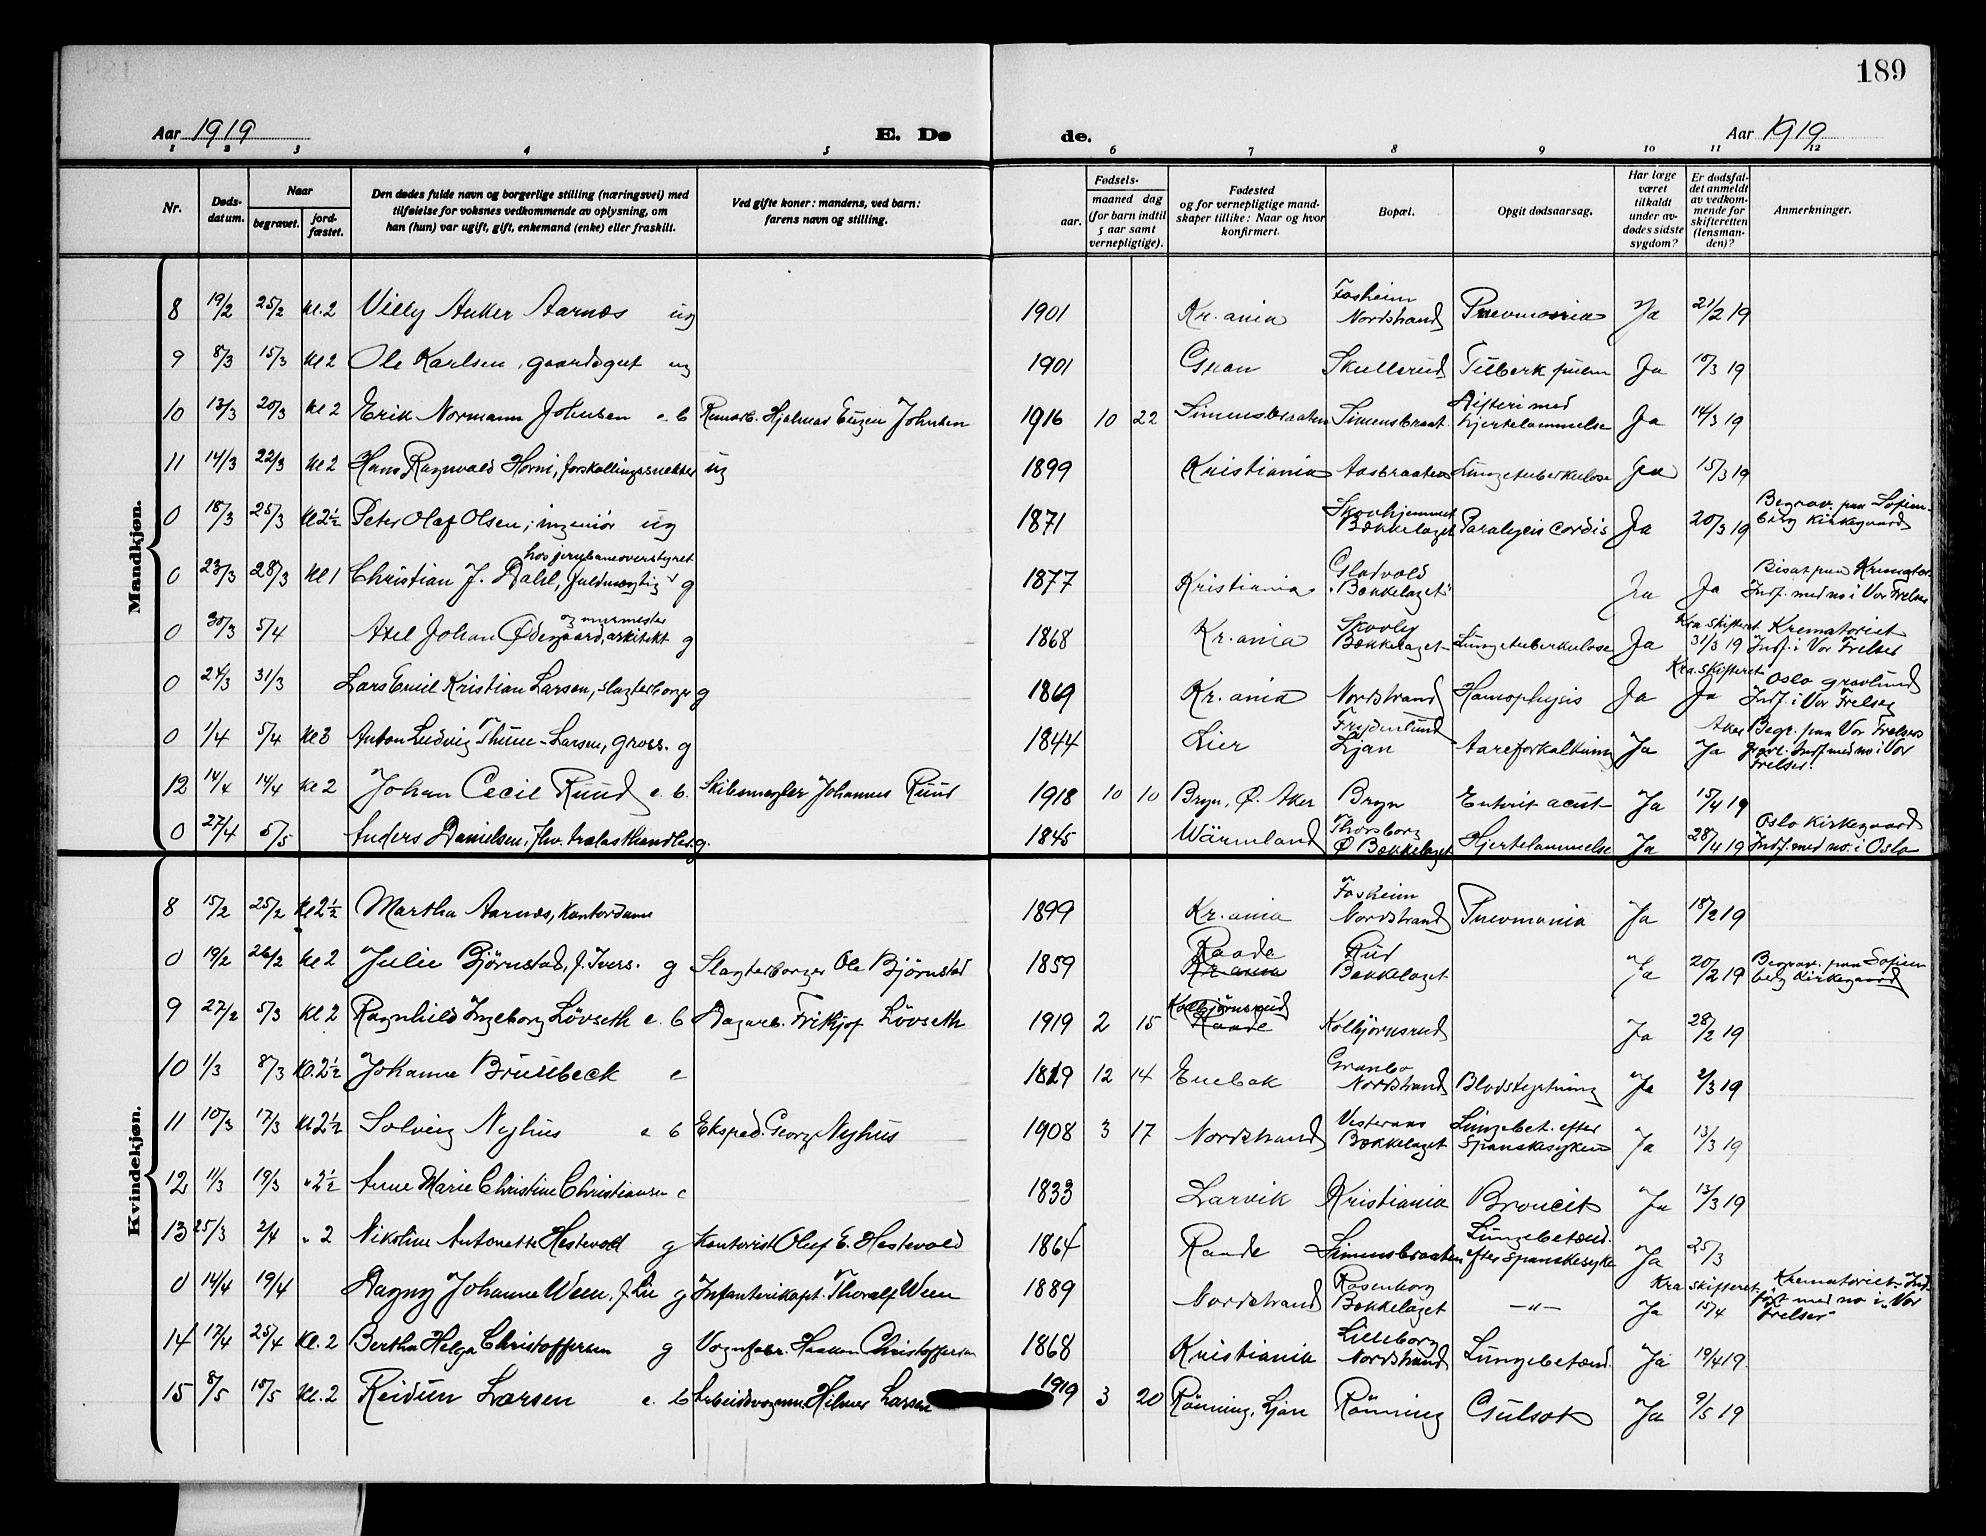 189
Aar 1919
E. Dø
de.
Aar 1919
1 2 3 4 5 6 7 8 9 10 11 12
Nr.
Døds-
datum.
Naar
begravet.
jord-
fæstet.
Den dødes fulde navn og borgerlige stilling (næringsvei) med
tilføielse for voksnes vedkommende av oplysning, om
han (hun) var ugift, gift, enkemand (enke) eller fraskilt.
Ved gifte koner: mandens, ved barn:
farens navn og stilling.
Fødsels-
aar.
maaned dag
(for barn indtil
5 aar samt
vernepligtige).
Fødested
og for vernepligtige mand-
skaper tillike: Naar og hvor
konfirmert.
Bopæl.
Opgit dødsaarsag.
Har læge
været
tilkaldt
under av-
dødes sidste
sygdom?
Er dødsfal-
det anmeldt
av vedkom-
mende for
skifteretten
(lensman-
den)?
Anmerkninger.
Mandkjøn.
8 19/2 25/2 Kl. 2 Villy Anker Aarnæs ug 1901 Kr.ania Fosheim Nordstrand Pnevmonia Ja 21/2 19
9 8/3 15/3 Kl 2 Ole Karlsen, gaardsgut ug 1901 Gran Skullerud Tuberk pulm Ja 10/3 19
10 13/3 20/3 Kl 2 Erik Normann Johnsen e. b Hjalmar Eugen Johnsen 1916 10 22 Simensbraaten Simensbraat. Difteri med hjertelammelse Ja 14/3 19
11 14/3 22/3 Kl 2 Hans Ragnvald Horni, forskallingssnekker ug 1899 Kristiania Aasbraaten Lungetuberkulose Ja 15/3 19
0 18/3 25/3 Kl 2½ Peter Olaf Olsen, ingeniør ug 1871 Skovhjemmet Bækkelaget Paralysis cordis Ja 20/3 19 Begrav. paa Sofien-
berg kirkegaard
0 23/3 28/3 Kl 1 Christian J. Dahl, fuldmægtig hos jernbaneoverstyret g 1877 Kristiania Gladvold "Bækkelaget" Ja Ja Bisat paa Kremator.
Indf. med no i Vor Frelser
0 30/3 5/4 Axel Johan Ødegaard, arkitekt og murmester g 1868 Kr.ania Skovly Bækkelaget Lungetuberkulose Ja Kra. Skifteret 31/3 19 Krematoriet
Indf. i Vor Frelser
0 24/3 31/3 Lars Emil Kristian Larsen, slagterborger g 1869 Kr.ania Nordstrand Hæmophysis Ja Kra. Skifteret Ja Oslo gravlund
Indf. i Vor Frelser
0 1/4 5/4 Kl 3 Anton Ludvig Thune-Larsen, gross. g 1844 Lier Frydenlund Ljan Aareforkalkning Ja Aker Ja Begr. paa Vor Frelsers
gravl. Indf med no i Vor
Frelser.
12 14/4 14/4 Kl 2 Johan Cecil Ruud e. b. Skibsmegler Johannes Ruud 1918 10 10 Bryn, Ø. Aker Bryn Enterit acut Ja 15/4 19
0 27/4 5/5 Anders Danielsen, fhv. trælasthandler g. 1845 Wärmland Thorsborg Ø Bækkelaget Hjertelammelse Ja 28/4 19 Oslo kirkegaard
Indf. med no. i Oslo
Kvindekjøn.
8 15/2 25/2 Kl 2½ Martha Aarnæs, kontordame 1899 Kr.ania Fosheim Nordstrand Pnevmonia Ja 18/2 19
0 19/2 26/2 Kl 2 Julie Bjørnstad, f. Ivers. g Slagterborger Ole Bjørnstad 1859 Raade Kr.ania Rud Bækkelaget Ja 20/2 19 Begrav. paa Sofien
berg kirkegaard
9 27/2 5/3 Kl 2 Ragnhild Ingeborg Lövseth e. b Dagarb. Frithjof Lövseth 1919 2 15 Kolbjørnsrud Raade Kolbjörnsrud Ja 28/2 19
10 1/3 8/3 Kl. 2½ Johanne Bruubeck e 1829 12 14 Enebak Granbo Nordstrand Blodstyrtning Ja 2/3 19
11 10/3 17/3 Kl 2½ Solveig Nyhus e b Eksped. Georg Nyhus 1908 3 17 Nordstrand Vesteraas Bækkelaget Lungebet. efter Spanskesyken Ja 13/3 19
12 11/3 19/3 " 2½ Anne Marie Christine Christiansen e 1833 Larvik Kristiania Broncit Ja 13/3 19
13 25/3 2/4 " 2 Nikoline Antonette Hestvold g Kontorist Oluf E. Hestvold 1864 Raade Simensbraaten Lungebetænd. efter spanskesyke Ja 25/3
0 14/4 19/4 Dagny Johanne Ween, f. Lie g Infanterikapt. Thoralf Ween 1889 Nordstrand Rosenborg Bækkelaget —"— Kra skifteret Ja 15/4 Krematoriet Ind-
ført med no i "Vor
Frelser"
14 17/4 25/4 Kl. 2 Bertha Helga Christoffersen g Vognfabr. Haakon Christoffersen 1868 Kristiania Lilleborg Nordstrand Lungebetænd. Ja 19/4 19.
15 8/5 15/5 Kl. 2 Reidun Larsen e. b Arbeidsvognm. Hilmar Larsen 1919 3 20 Rönning, Ljan Rönning Gulsot Ja 9/5 19